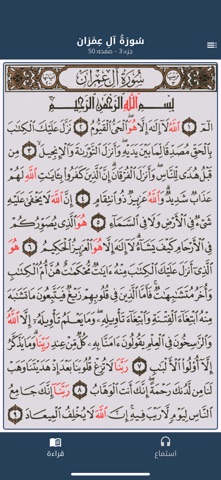 سُورَةُ آلِ عِمْرَان
جزء:3 - صفحه:50
سُورَةُ آلِ عِمْرَانَ
بِسْمِ اللَّهِ الرَّحْمَٰنِ الرَّحِيمِ
الٓمٓ ١ اللَّهُ لَا إِلَٰهَ إِلَّا هُوَ الْحَىُّ الْقَيُّومُ ٢ نَزَّلَ عَلَيْكَ الْكِتَٰبَ
بِالْحَقِّ مُصَدِّقًا لِّمَا بَيْنَ يَدَيْهِ وَأَنزَلَ التَّوْرَىٰةَ وَالْإِنجِيلَ ٣ مِن
قَبْلُ هُدًى لِّلنَّاسِ وَأَنزَلَ الْفُرْقَانَ إِنَّ الَّذِينَ كَفَرُوا بِـَٔايَٰتِ اللَّهِ لَهُمْ
عَذَابٌ شَدِيدٌ وَاللَّهُ عَزِيزٌ ذُو انتِقَامٍ ٤ إِنَّ اللَّهَ لَا يَخْفَىٰ عَلَيْهِ
شَىْءٌ فِى الْأَرْضِ وَلَا فِى السَّمَاءِ ٥ هُوَ الَّذِى يُصَوِّرُكُمْ
فِى الْأَرْحَامِ كَيْفَ يَشَاءُ لَا إِلَٰهَ إِلَّا هُوَ الْعَزِيزُ الْحَكِيمُ ٦ هُوَ
الَّذِى أَنزَلَ عَلَيْكَ الْكِتَٰبَ مِنْهُ ءَايَٰتٌ مُّحْكَمَٰتٌ هُنَّ أُمُّ الْكِتَٰبِ
وَأُخَرُ مُتَشَٰبِهَٰتٌ فَأَمَّا الَّذِينَ فِى قُلُوبِهِمْ زَيْغٌ فَيَتَّبِعُونَ مَا تَشَٰبَهَ
مِنْهُ ابْتِغَاءَ الْفِتْنَةِ وَابْتِغَاءَ تَأْوِيلِهِ وَمَا يَعْلَمُ تَأْوِيلَهُ إِلَّا اللَّهُ
وَالرَّٰسِخُونَ فِى الْعِلْمِ يَقُولُونَ ءَامَنَّا بِهِ كُلٌّ مِّنْ عِندِ رَبِّنَا وَمَا يَذَّكَّرُ
إِلَّا أُولُوا الْأَلْبَٰبِ ٧ رَبَّنَا لَا تُزِغْ قُلُوبَنَا بَعْدَ إِذْ هَدَيْتَنَا وَهَبْ
لَنَا مِن لَّدُنكَ رَحْمَةً إِنَّكَ أَنتَ الْوَهَّابُ ٨ رَبَّنَا إِنَّكَ جَامِعُ
النَّاسِ لِيَوْمٍ لَّا رَيْبَ فِيهِ إِنَّ اللَّهَ لَا يُخْلِفُ الْمِيعَادَ ٩
استماع
قراءة